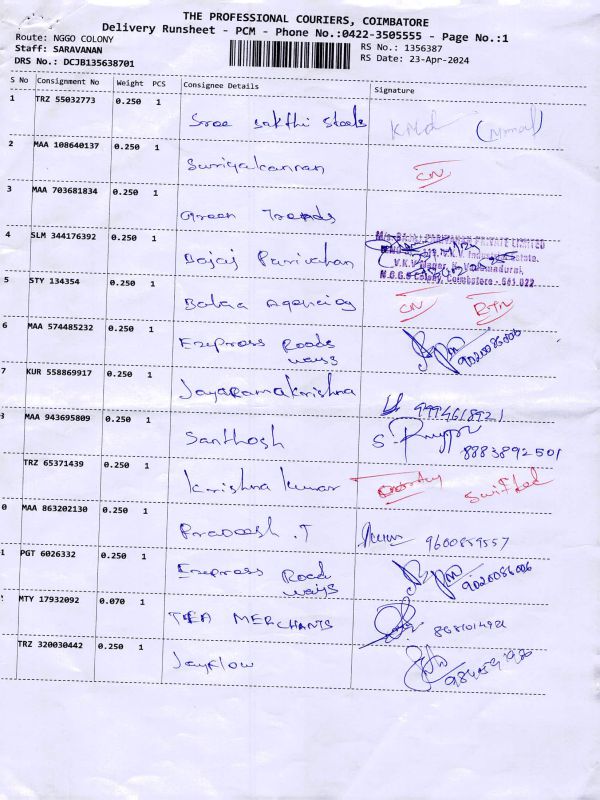 THE PROFESSIONAL COURIERS, COIMBATORE
Delivery Runsheet - PCM - Phone No.:0422-3505555 - Page No.:1
Route: NGGO COLONY
RS No.: 1356387
Staff: SARAVANAN
RS Date: 23-Apr-2024
DRS No.: DCJB135638701
S No Consignment No Weight PCS Consignee Details Signature
1 TRZ 55032773 0.250 1
Sree Sakthi Steels
2 MAA 108640137 0.250 1
Suriyakannan CN
3 MAA 703681834 0.250 1
Green Trends
4 SLM 344176392 0.250 1
Bajaj Parivahan
PRIVATE LIMITED
Coimbatore - 641 022
5 STY 134354 0.250 1
Balaa Agencies CN RTN
6 MAA 574485232 0.250 1
Express Roads
ways
7 KUR 558869917 0.250 1
Jayaramakrishna 9994618921
MAA 943695809 0.250 1
Santhosh 8883892501
TRZ 65371439 0.250 1
Krishna Kumar
0 MAA 863202130 0.250 1
Pradeesh .T 9600859557
1 PGT 6026332 0.250 1
Express Road
ways
MTY 17932092 0.070 1
TEA MERCHANTS
TRZ 320030442 0.250 1
Jayflow